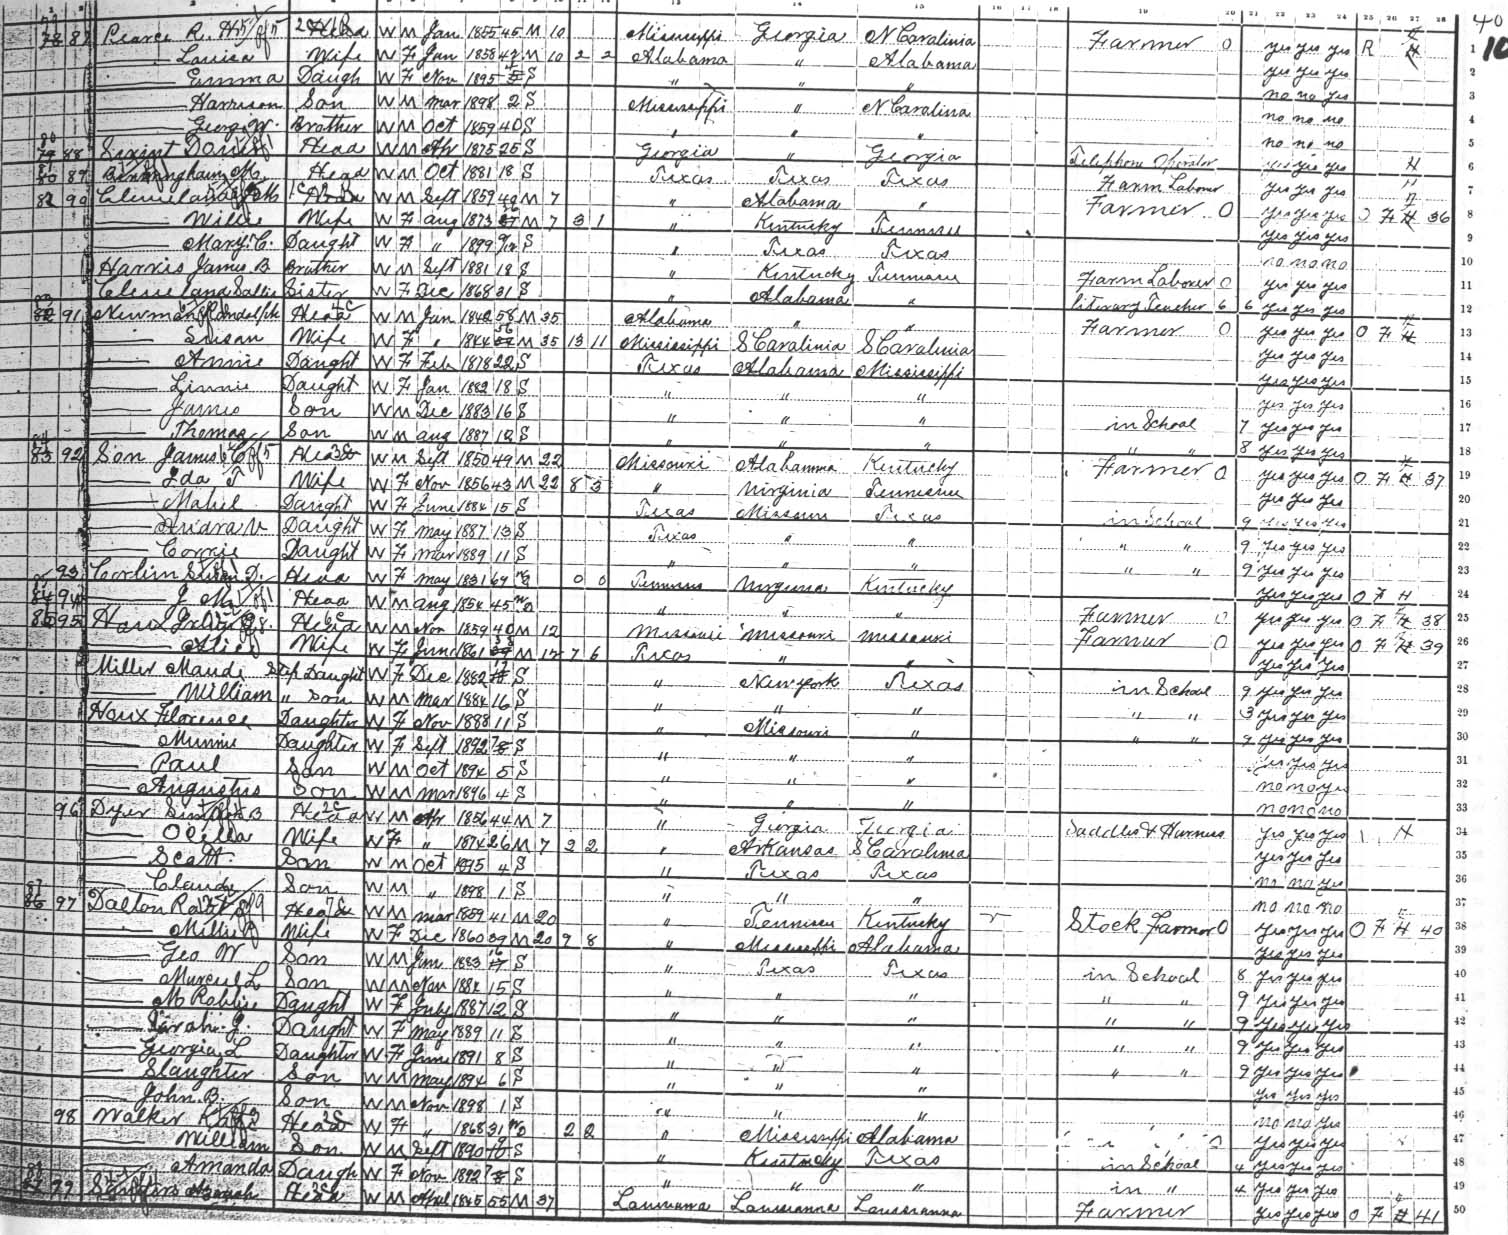 78 87 Pearce R. H. Head W M Jan 1855 45 M 10 Mississippi Georgia N Carolina Farmer 0 yes yes yes R H 1
Louisa Wife W F Jan 1858 42 M 10 2 2 Alabama " Alabama yes yes yes 2
Emma Daugh W F Nov 1895 S " " " no no yes 3
Harrison Son W M Mar 1898 2 S Mississippi " N Carolina no no no 4
George W. Brother W M Oct 1859 40 S " " " no no no 5
79 88 Head W M Apr 1875 25 S Georgia " Georgia Telephone Operator yes yes yes H 6
80 89 Birmingham M. Head W M Oct 1881 18 S Texas Texas Texas Farm Laborer yes yes yes H 7
82 90 Cleveland Head W M Sept 1859 40 M 7 " Alabama " Farmer 0 yes yes yes O F H 36 8
Willie Wife W F Aug 1873 M 7 3 1 " Kentucky Tennessee yes yes yes 9
Mary C. Daught W F " 1899 S " Texas Texas no no no 10
Harris James B Brother W M Sept 1881 18 S " Kentucky Tennessee Farm Laborer 0 yes yes yes 11
Cleveland Sallie Sister W F Dec 1868 31 S " Alabama " literary Teacher 6 6 yes yes yes 12
82 91 Newman Randolph Head W M Jan 1842 58 M 35 Alabama " " Farmer 0 yes yes yes O F H 13
Susan Wife W F " 1844 56 M 35 13 11 Mississippi S Carolinia S Carolinia yes yes yes 14
Annie Daught W F Feb 1878 22 S Texas Alabama Mississippi yes yes yes 15
Linnie Daught W F Jan 1882 18 S " " " yes yes yes 16
James Son W M Dec 1883 16 S " " " in School 7 yes yes yes 17
Thomas Son W M Aug 1887 12 S " " " " " 8 yes yes yes 18
83 92 Son James Head W M Sept 1850 49 M 22 Missouri Alabama Kentucky Farmer 0 yes yes yes O F H 37 19
Ida T Wife W F Nov 1856 43 M 22 8 3 " Virginia Tennessee yes yes yes 20
Mabil Daught W F June 1884 15 S Texas Missouri Texas in School 9 yes yes yes 21
Daught W F May 1887 13 S Texas " " " " 9 yes yes yes 22
Corrie Daught W F Mar 1889 11 S " " " " " 9 yes yes yes 23
93 Susan D. Head W F May 1831 69 Wd 0 0 Tennessee Virginia Kentucky yes yes yes O F H 24
84 94 J. M. Head W M Aug 1854 45 Wd " " " Farmer 0 yes yes yes O F H 38 25
85 95 Houx Head W M Nov 1859 40 M 12 Missouri Missouri Missouri Farmer 0 yes yes yes O F H 39 26
Alice Wife W F June 1861 M 12 7 6 Texas " " yes yes yes 27
Miller Maude Step Daught W F Dec 1882 17 S " New York Texas in School 9 yes yes yes 28
William " Son W M Mar 1884 16 S " " " " " 3 yes yes yes 29
Houx Florence Daughter W F Nov 1888 11 S " Missouri " " " 9 yes yes yes 30
Minnie Daughter W F Sept 1892 S " " " yes yes yes 31
Paul Son W M Oct 1894 5 S " " " no no yes 32
Augustus Son W M Mar 1896 4 S " " " no no no 33
96 Dyer B Head W M Apr 1856 44 M 7 " Georgia Georgia Saddles & Harness yes yes yes H 34
Olilla Wife W F " 1874 26 M 7 2 2 " Arkansas S Carolinia yes yes yes 35
Scott Son W M Oct 1895 4 S " Texas Texas no no yes 36
Claude Son W M " 1898 1 S " " " no no no 37
86 97 Dalton Robt S Head W M Mar 1859 41 M 20 " Tennisee Kentucky Stock Farmer 0 yes yes yes O F H 40 38
Millie Wife W F Dec 1860 39 M 20 9 8 " Mississippi Alabama yes yes yes 39
Geo W Son W M Jun 1883 16 S " Texas Texas in School 8 yes yes yes 40
L Son W M Nov 1884 15 S " " " " " 9 yes yes yes 41
M Robbie Daught W F July 1887 12 S " " " " " 9 yes yes yes 42
Sarah J. Daught W F May 1889 11 S " " " " " 9 yes yes yes 43
Georgia L Daughter W F June 1891 8 S " " " " " 9 yes yes yes 44
Slaughter Son W M May 1894 6 S " " " yes yes yes 45
John B. Son W M Nov 1898 1 S " " " no no yes 46
98 Walker Head W F " 1868 31 Wd 2 2 " Mississippi Alabama yes yes yes 47
William Son W M Sept 1890 S " Kentucky Texas in School 4 yes yes yes 48
Amanda Daugh W F Nov 1892 S " " " in " 4 yes yes yes 49
99 Head W M April 1845 55 M 37 Louisiana Louisianna Louisianna Farmer yes yes yes O F H 41 50